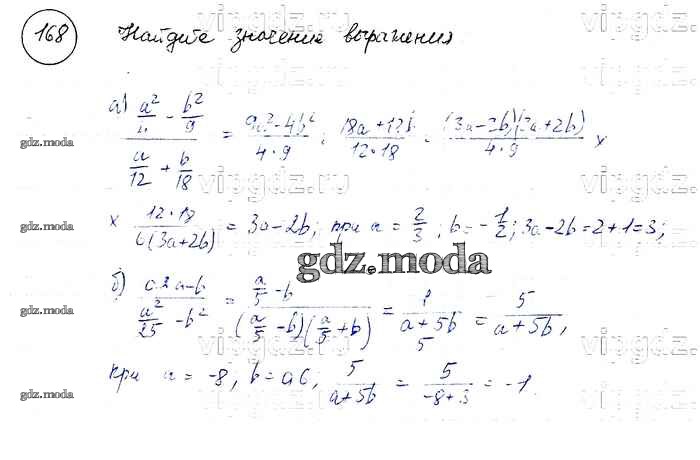 168 Найдите значение выражения
а) (a²/4 - b²/9) / (a/12 + b/18) = (9a²-4b²)/(4·9) : (18a+12b)/(12·18) = (3a-2b)(3a+2b)/(4·9) ×
× 12·18/(6(3a+2b)) = 3a-2b; при a = 2/3; b = -1/2; 3a-2b=2+1=3;
б) (0.2a-b)/(a²/25 - b²) = (a/5 - b)/((a/5 - b)(a/5 + b)) = 1/((a+5b)/5) = 5/(a+5b),
при a = -8, b = 0,6; 5/(a+5b) = 5/(-8+3) = -1.
gdz.moda
gdz.moda
gdz.moda
gdz.moda
gdz.moda
vipgdz.ru
vipgdz.ru
vipgdz.ru
vipgdz.ru